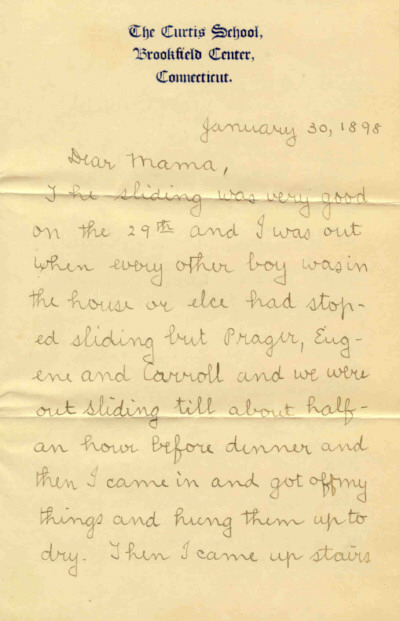 The Curtis School,
Brookfield Center,
Connecticut.
January 30, 1898
Dear Mama,
The sliding was very good
on the 29th and I was out
when every other boy was in
the house or elce had stop-
ed sliding but Prager, Eug-
ene and Carroll and we were
out sliding till about half-
an hour before dinner and
then I came in and got off my
things and hung them up to
dry. Then I came up stairs